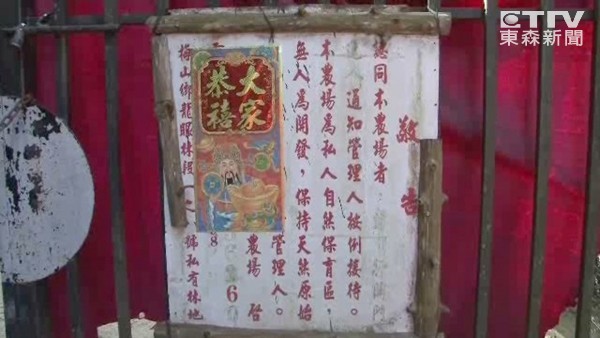 敬告
認同本農場者
通知管理人按例接待。
本農場為私人自然保育區,
無人為開發,保持天然原始
管理人。
農場 啓
8 6
梅山鄉龍眼林段 之 號私有林地
大家
恭禧
ETTV
東森新聞